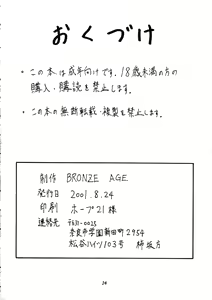 おくづけ
・この本は成年向けです。18歳未満の方の
購入・購読を禁止します。
・この本の無断転載・複製を禁止します。
制作 BRONZE AGE
発行日 2001.8.24
印刷 ホープ21様
連絡先 〒631-0025
奈良市学園新田町2954
松谷ハイツ103号 柿坂方